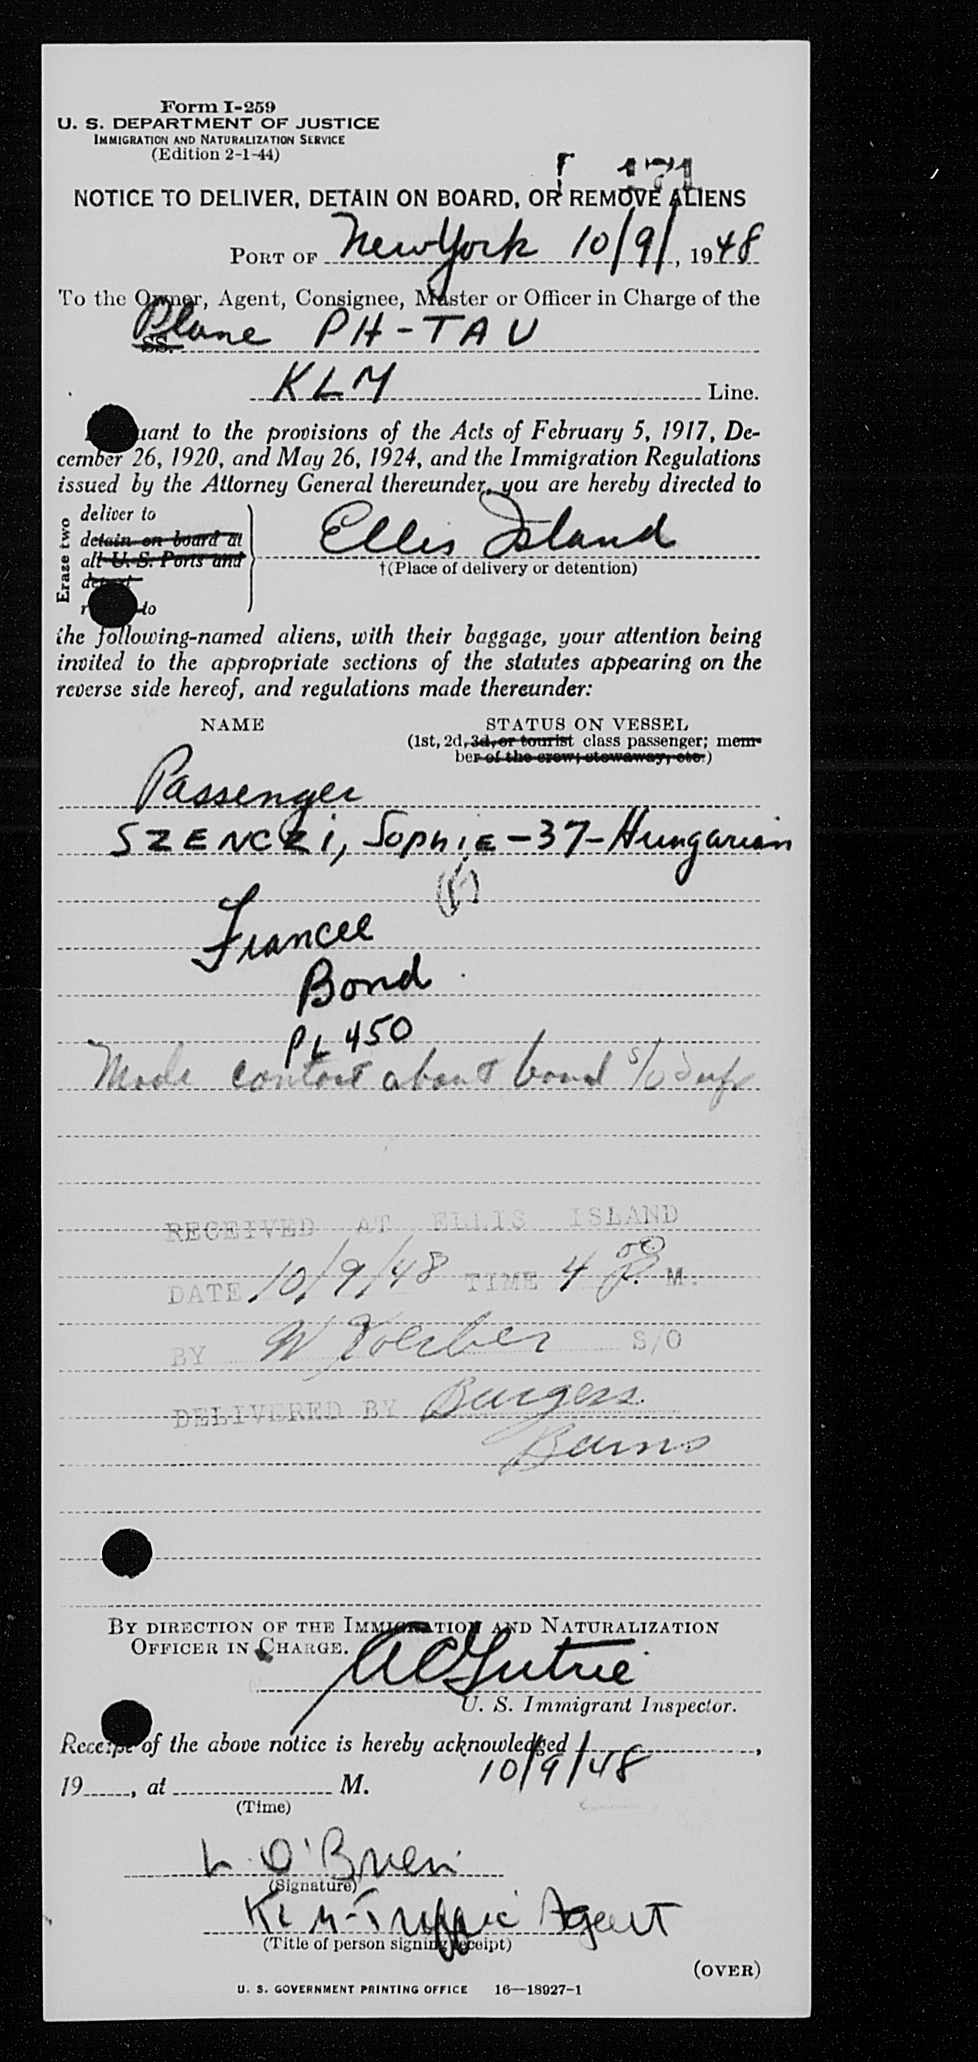 Form I-259
U. S. DEPARTMENT OF JUSTICE
IMMIGRATION AND NATURALIZATION SERVICE
(Edition 2-1-44)
171
NOTICE TO DELIVER, DETAIN ON BOARD, OR REMOVE ALIENS
PORT OF New York 10/9/, 1948
To the Owner, Agent, Consignee, Master or Officer in Charge of the
SS. Plane PH-TAU
KLM Line.
uant to the provisions of the Acts of February 5, 1917, De-
cember 26, 1920, and May 26, 1924, and the Immigration Regulations
issued by the Attorney General thereunder, you are hereby directed to
Eraze two
deliver to
detain on board at
all U. S. Ports and
to
Ellis Island
†(Place of delivery or detention)
the following-named aliens, with their baggage, your attention being
invited to the appropriate sections of the statutes appearing on the
reverse side hereof, and regulations made thereunder:
NAME STATUS ON VESSEL
(1st, 2d, 3d, or tourist class passenger; mem-
ber of the crew; stowaway, etc.)
Passenger
SZENCZI, Sophie - 37 - Hungarian
Fiancee
Bond
PL 450
Made contact about bond S/O
RECEIVED AT ELLIS ISLAND
DATE 10/9/48 TIME 4 00 P. M.
BY W Koerber S/O
DELIVERED BY Burgess
Burns
BY DIRECTION OF THE IMMIGRATION AND NATURALIZATION
OFFICER IN CHARGE.
A C Gutrie
U. S. Immigrant Inspector.
Receipt of the above notice is hereby acknowledged ,
10/9/48
19 , at M.
(Time)
L. O'Brien
(Signature)
KLM-Traffic Agent
(Title of person signing receipt)
(OVER)
U. S. GOVERNMENT PRINTING OFFICE 16—18927-1